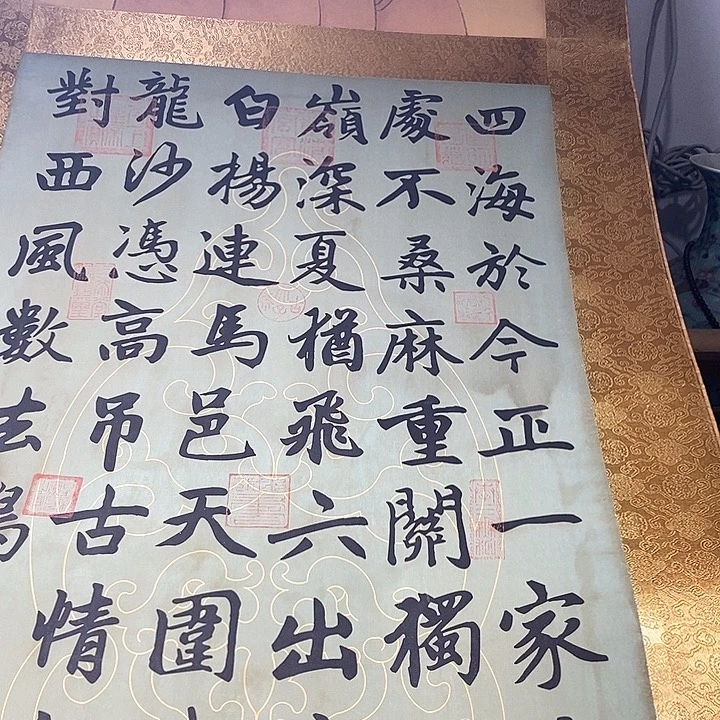 四海於今正一家
處不桑麻重關獨
嶺深夏猶飛六出
白揚連馬邑天圍
龍沙憑高吊古情
對西風數去